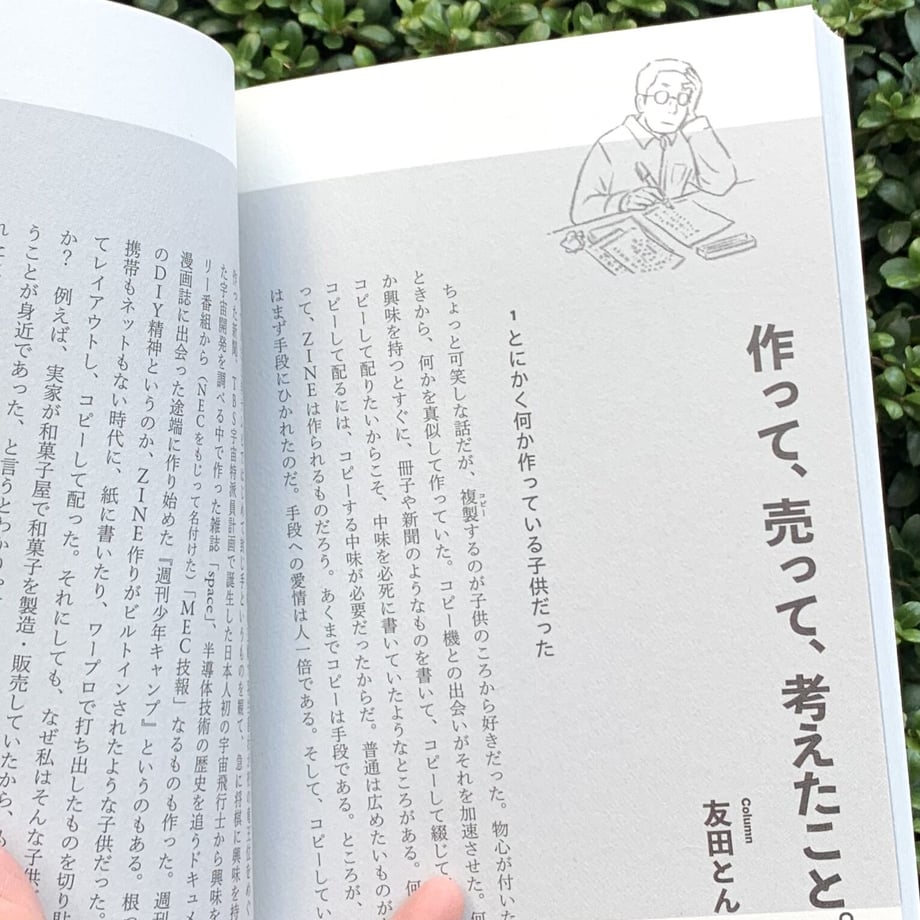 作って、売って、考えたこと。
Column
友田とん
1 とにかく何か作っている子供だった
ちょっと可笑しな話だが、複製するのが子供のころから好きだった。物心が付いた
コピー
ときから、何かを真似して作っていた。コピー機との出会いがそれを加速させた。何
か興味を持つとすぐに、冊子や新聞のようなものを書いて、コピーして綴じて、
コピーして配りたいからこそ、中味を必死に書いていたようなところがある。何
コピーして配るには、コピーする中味が必要だったからだ。普通は広めたいものが
って、ZINEは作られるものだろう。あくまでコピーは手段である。ところが、
はまず手段にひかれたのだ。手段への愛情は人一倍である。そして、コピーしてい
作った新聞、TBS宇宙特派員計画で誕生した日本人初の宇宙飛行士から興味を
た宇宙開発を調べる中で作った雑誌「space」、半導体技術の歴史を追うドキュメ
リー番組から（NECをもじって名付けた）「MEC技報」なるものも作った。週刊
漫画誌に出会った途端に作り始めた『週刊少年キャンプ』というのもある。根っ
のDIY精神というのか、ZINE作りがビルトインされたような子供だった。
携帯もネットもない時代に、紙に書いたり、ワープロで打ち出したものを切り貼
てレイアウトし、コピーして配った。それにしても、なぜ私はそんな子供
か？ 例えば、実家が和菓子屋で和菓子を製造・販売していたから、も
うことが身近であった、と言うとわかりや